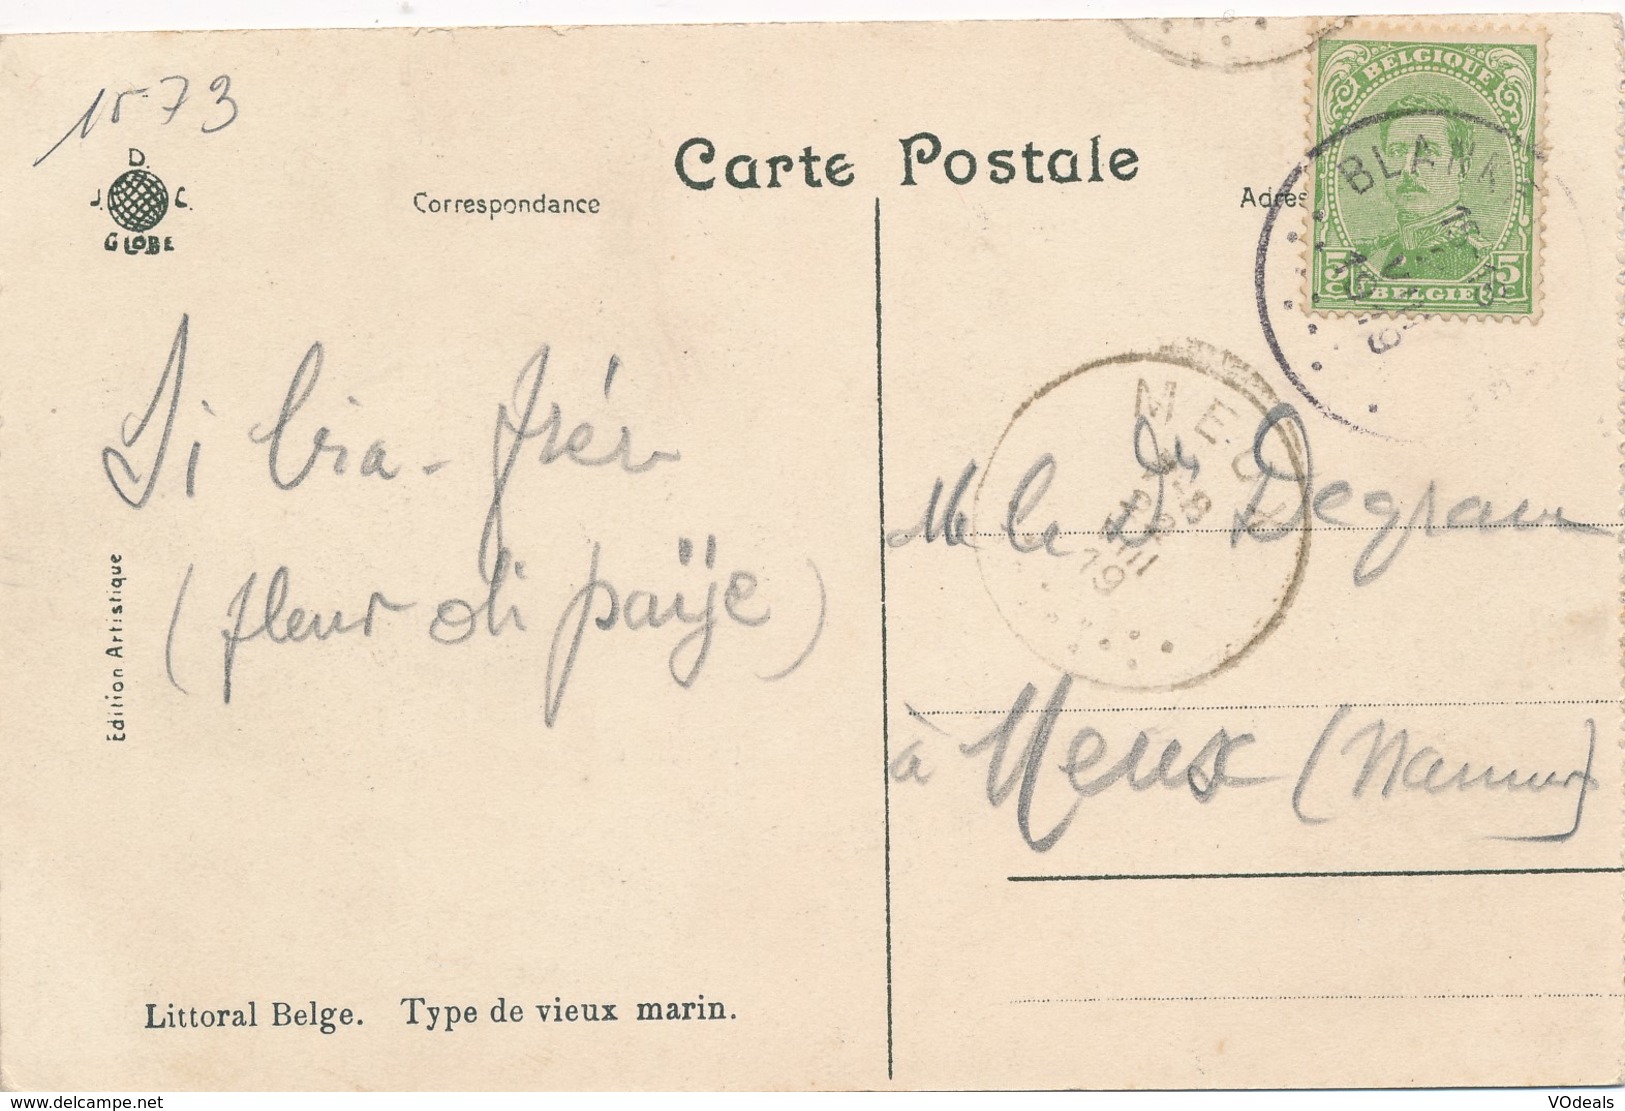 1573
D.
J. C.
GLOBE
Carte Postale
Correspondance
Adres
BELGIQUE
5 5
BELGIE
BLANK
1919
MEUX
19
Si bia-frér
(fleur di payïe)
Mr le Dr Degraux
à Meux (Namur)
Edition Artistique
Littoral Belge. Type de vieux marin.
www.delcampe.net
VOdeals